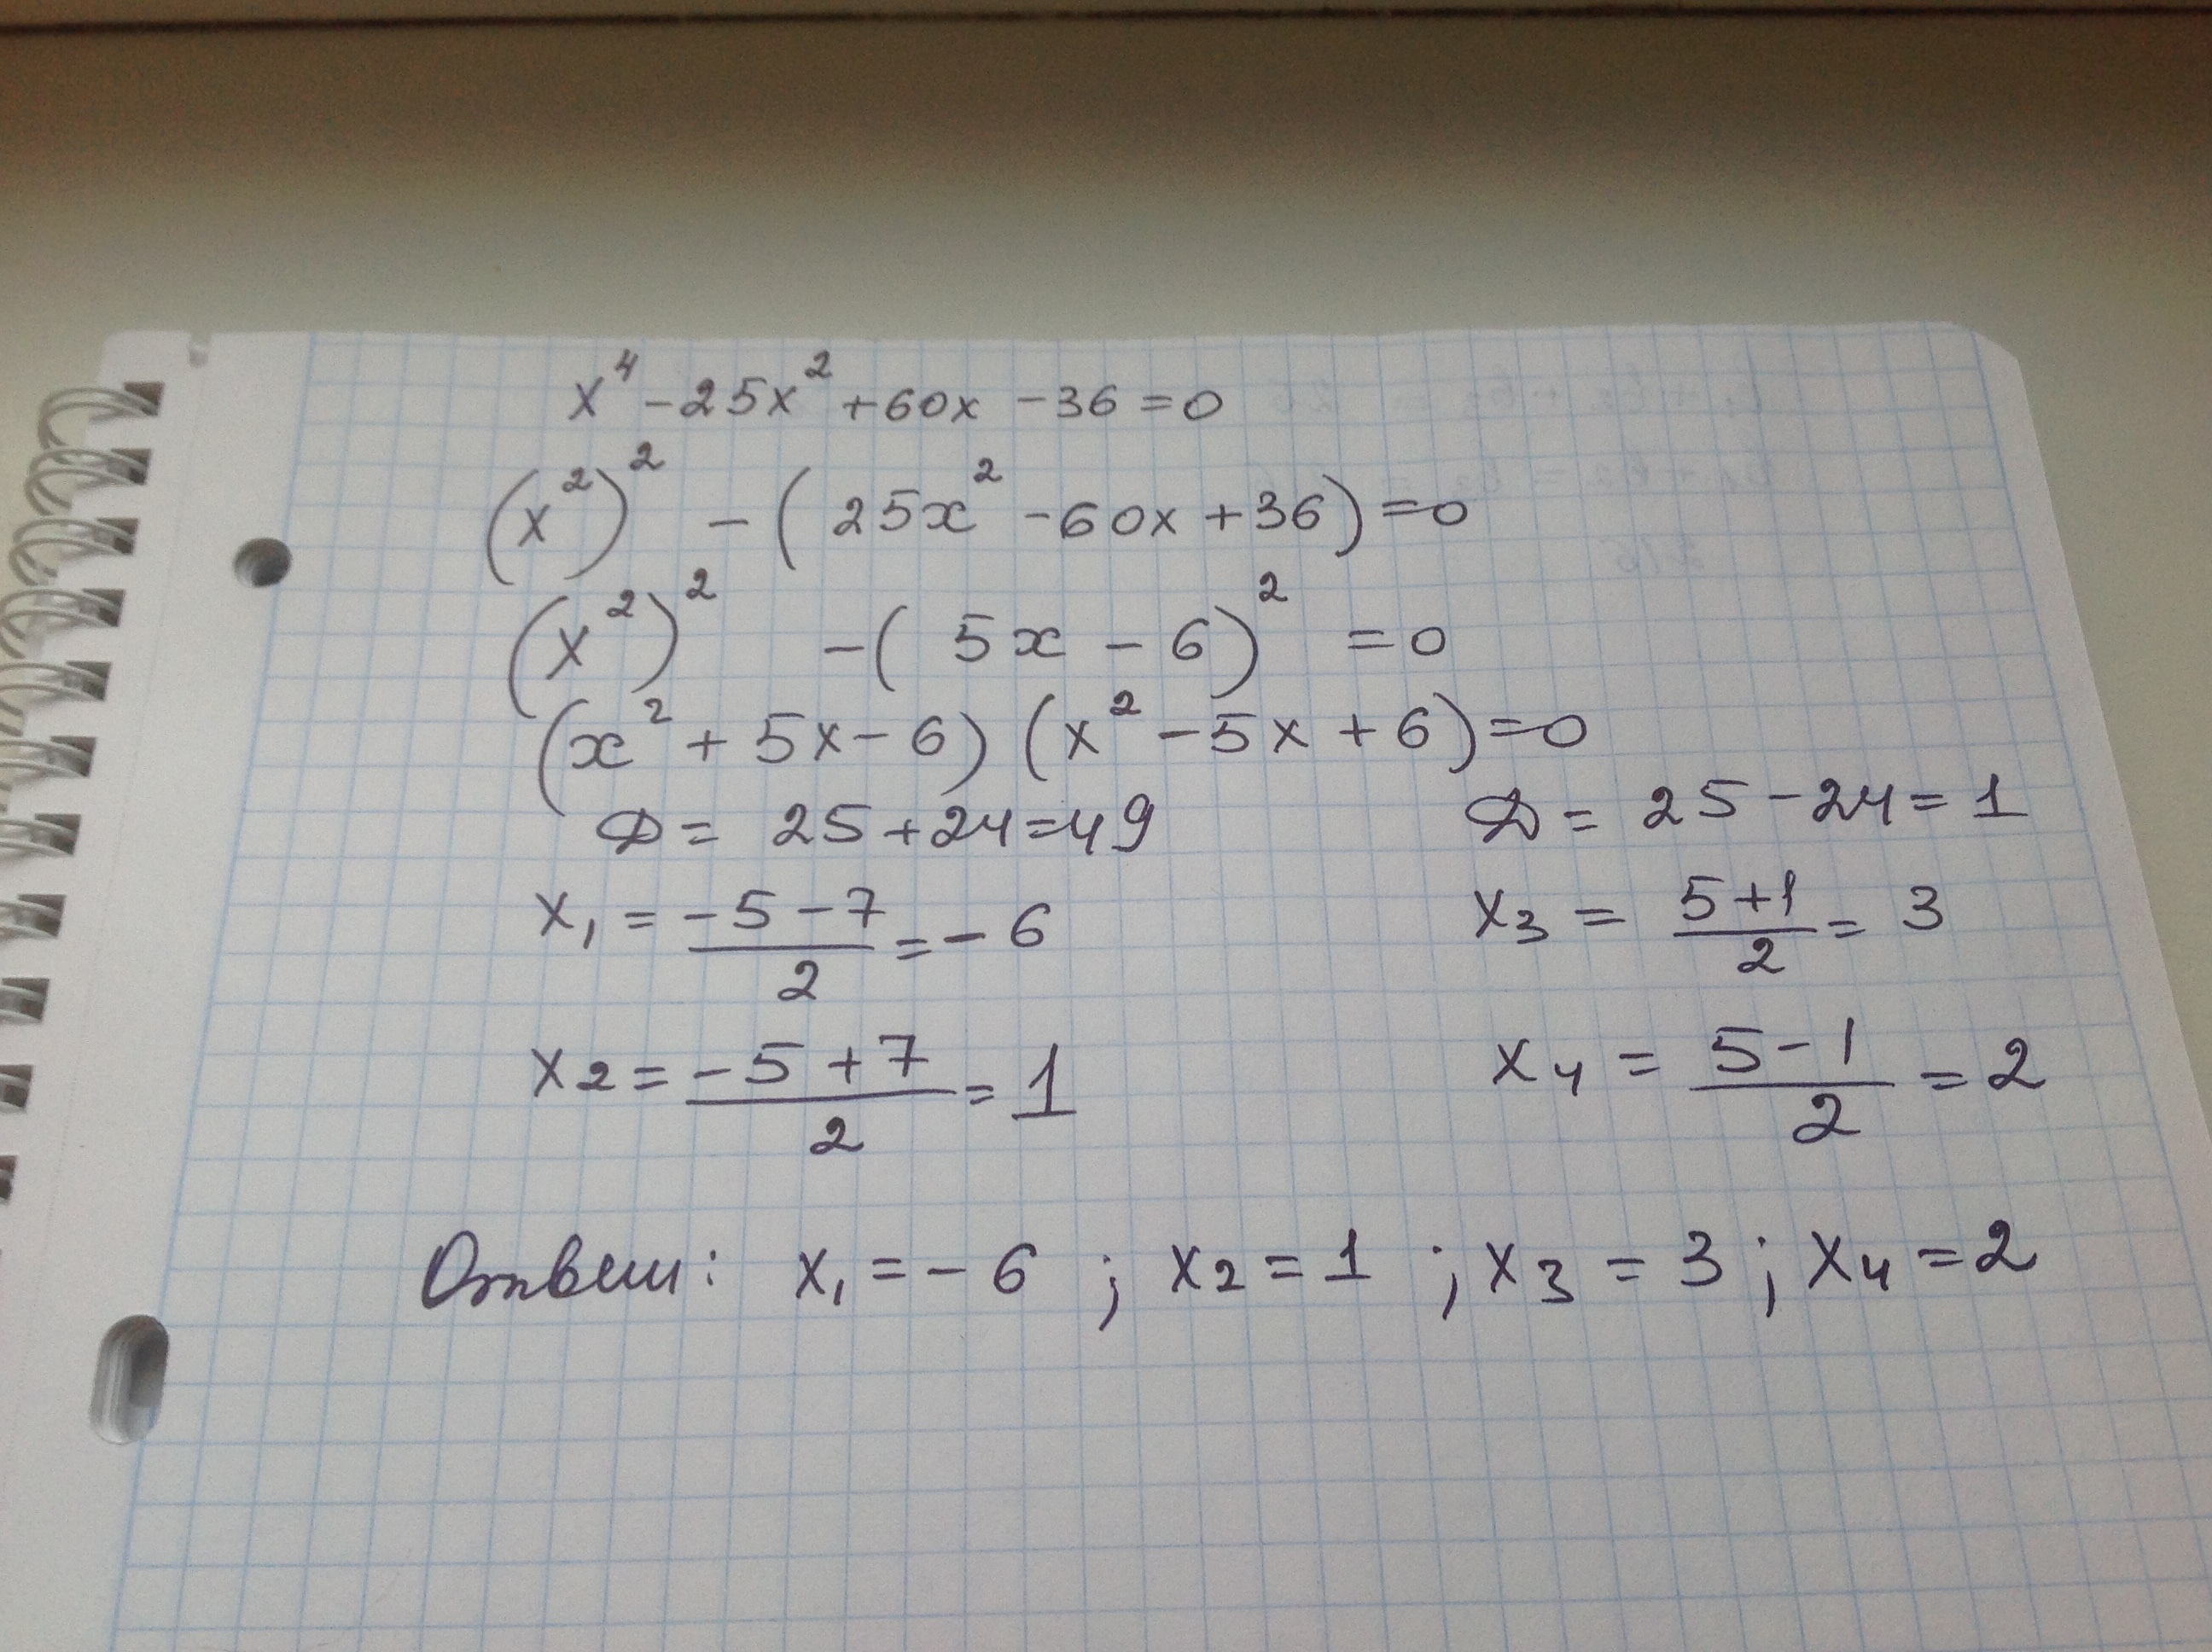 x⁴ - 25x² + 60x - 36 = 0
(x²)² - (25x² - 60x + 36) = 0
(x²)² - (5x - 6)² = 0
(x² + 5x - 6) (x² - 5x + 6) = 0
D = 25 + 24 = 49 D = 25 - 24 = 1
x₁ = (-5 - 7)/2 = -6 x₃ = (5 + 1)/2 = 3
x₂ = (-5 + 7)/2 = 1 x₄ = (5 - 1)/2 = 2
Ответ: x₁ = -6 ; x₂ = 1 ; x₃ = 3 ; x₄ = 2